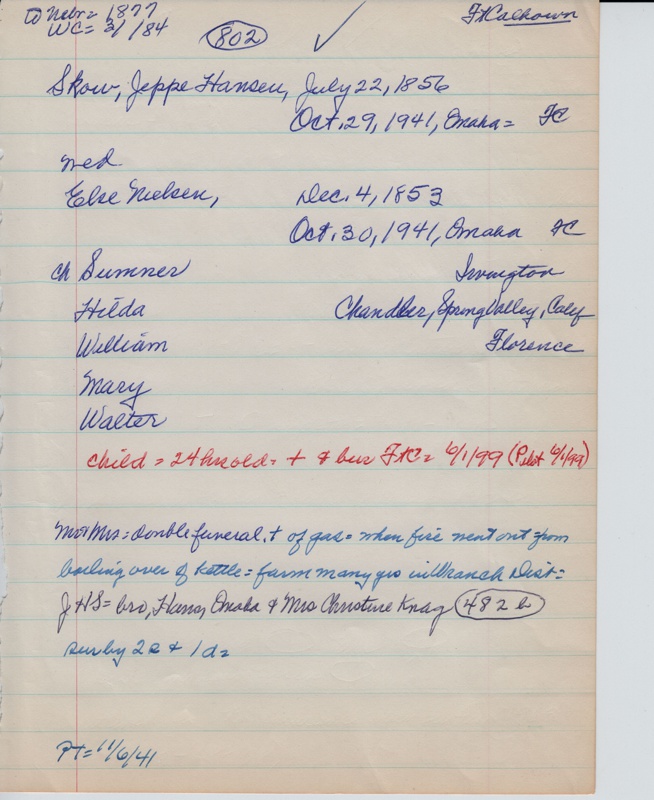 to Nebr = 1877
WC = 3/ /84
802
✓
Ft Calhoun
Skow, Jeppe Hansen, July 22, 1856
Oct. 29, 1941, Omaha = FC
wed
Else Nielsen, Dec. 4, 1853
Oct. 30, 1941, Omaha FC
ch Sumner Irvington
Hilda Chandler, Spring Valley, Calif
William Florence
Mary
Walter
child = 24 hrs old = + & bur FtC = 6/1/99 (Pilot 6/1/99)
Mr & Mrs = double funeral, + of gas = when fire went out from
boiling over of kettle = farm many yrs in Dist =
JHS = bro, Hans, Omaha & Mrs Christine Knag 482 b
sur by 2s & 1d =
PT = 11/6/41